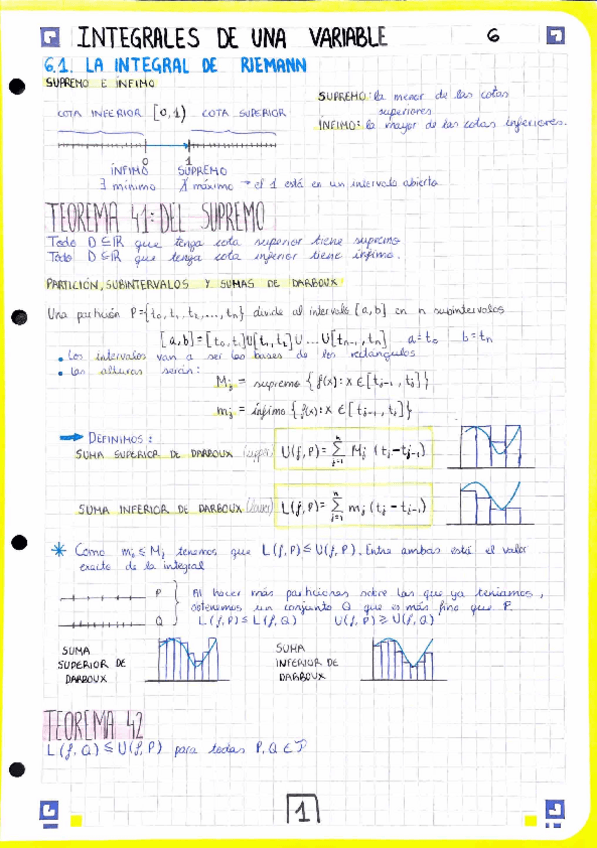 INTEGRALES DE UNA VARIABLE 6
6.1. LA INTEGRAL DE RIEMANN
SUPREMO E ÍNFIMO
SUPREMO: la menor de las cotas
superiores.
ÍNFIMO: la mayor de las cotas inferiores.
COTA INFERIOR [0,1) COTA SUPERIOR
0 1
ÍNFIMO SUPREMO
∃ mínimo ∄ máximo → el 1 está en un intervalo abierto
TEOREMA 41: DEL SUPREMO
Todo D ⊆ ℝ que tenga cota superior tiene supremo
Todo D ⊆ ℝ que tenga cota inferior tiene ínfimo.
PARTICIÓN, SUBINTERVALOS Y SUMAS DE DARBOUX
Una partición P={t₀, t₁, t₂, ..., tₙ} divide al intervalo [a,b] en n subintervalos
[a,b]=[t₀,t₁]∪[t₁,t₂]∪...∪[tₙ₋₁,tₙ] a=t₀ b=tₙ
• Los intervalos van a ser las bases de los rectángulos
• Las alturas serán:
Mⱼ = supremo {f(x): x ∈ [tⱼ₋₁, tⱼ]}
mⱼ = ínfimo {f(x): x ∈ [tⱼ₋₁, tⱼ]}
→ DEFINIMOS:
SUMA SUPERIOR DE DARBOUX (upper) U(f,P)= ∑ⁿⱼ₌₁ Mⱼ (tⱼ-tⱼ₋₁)
SUMA INFERIOR DE DARBOUX (lower) L(f,P)= ∑ⁿⱼ₌₁ mⱼ (tⱼ-tⱼ₋₁)
* Como mⱼ ≤ Mⱼ tenemos que L(f,P) ≤ U(f,P). Entre ambas está el valor
exacto de la integral
P
Q
Al hacer más particiones sobre las que ya teníamos,
obtenemos un conjunto Q que es más fino que P.
L(f,P) ≤ L(f,Q) U(f,P) ≥ U(f,Q)
SUMA
SUPERIOR DE
DARBOUX
SUMA
INFERIOR DE
DARBOUX
TEOREMA 42
L(f,Q) ≤ U(f,P) para todas P,Q ∈ 𝒫
1